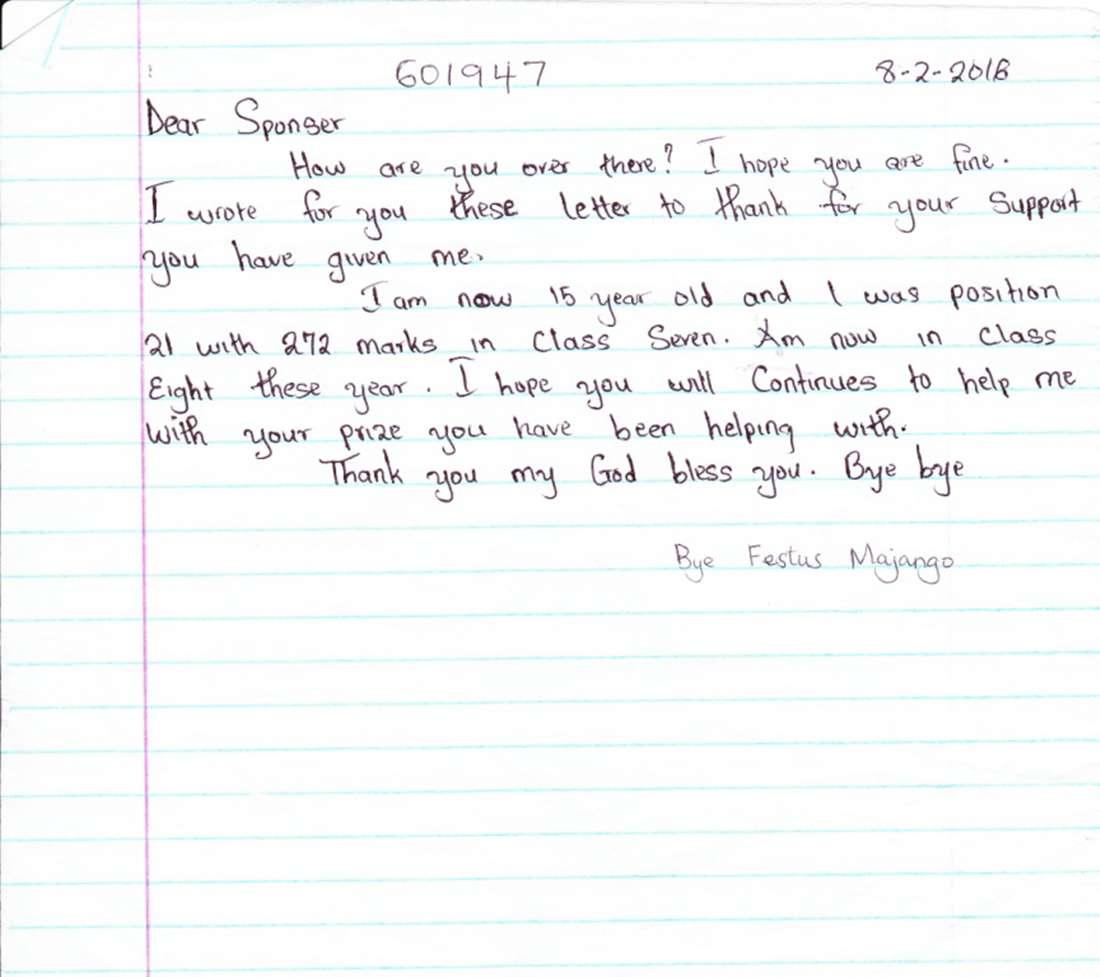 601947 8-2-2018
Dear Sponser
How are you over there? I hope you are fine.
I wrote for you these letter to thank for your Support
you have given me.
I am now 15 year old and I was position
21 with 272 marks in Class Seven. Am now in Class
Eight these year. I hope you will Continues to help me
With your prize you have been helping with.
Thank you my God bless you. Bye bye
Bye Festus Majango